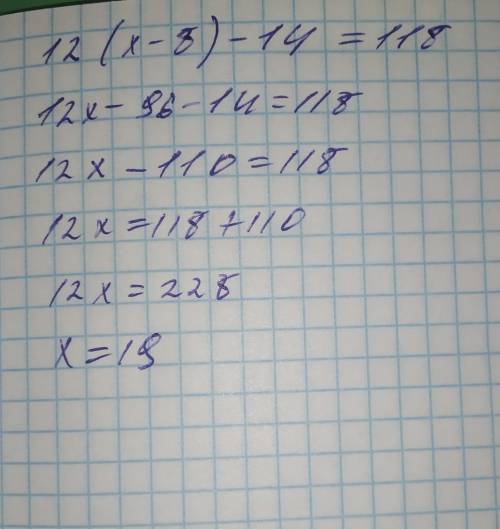 12(x-8)-14=118
12x-96-14=118
12x-110=118
12x=118+110
12x=228
x=19